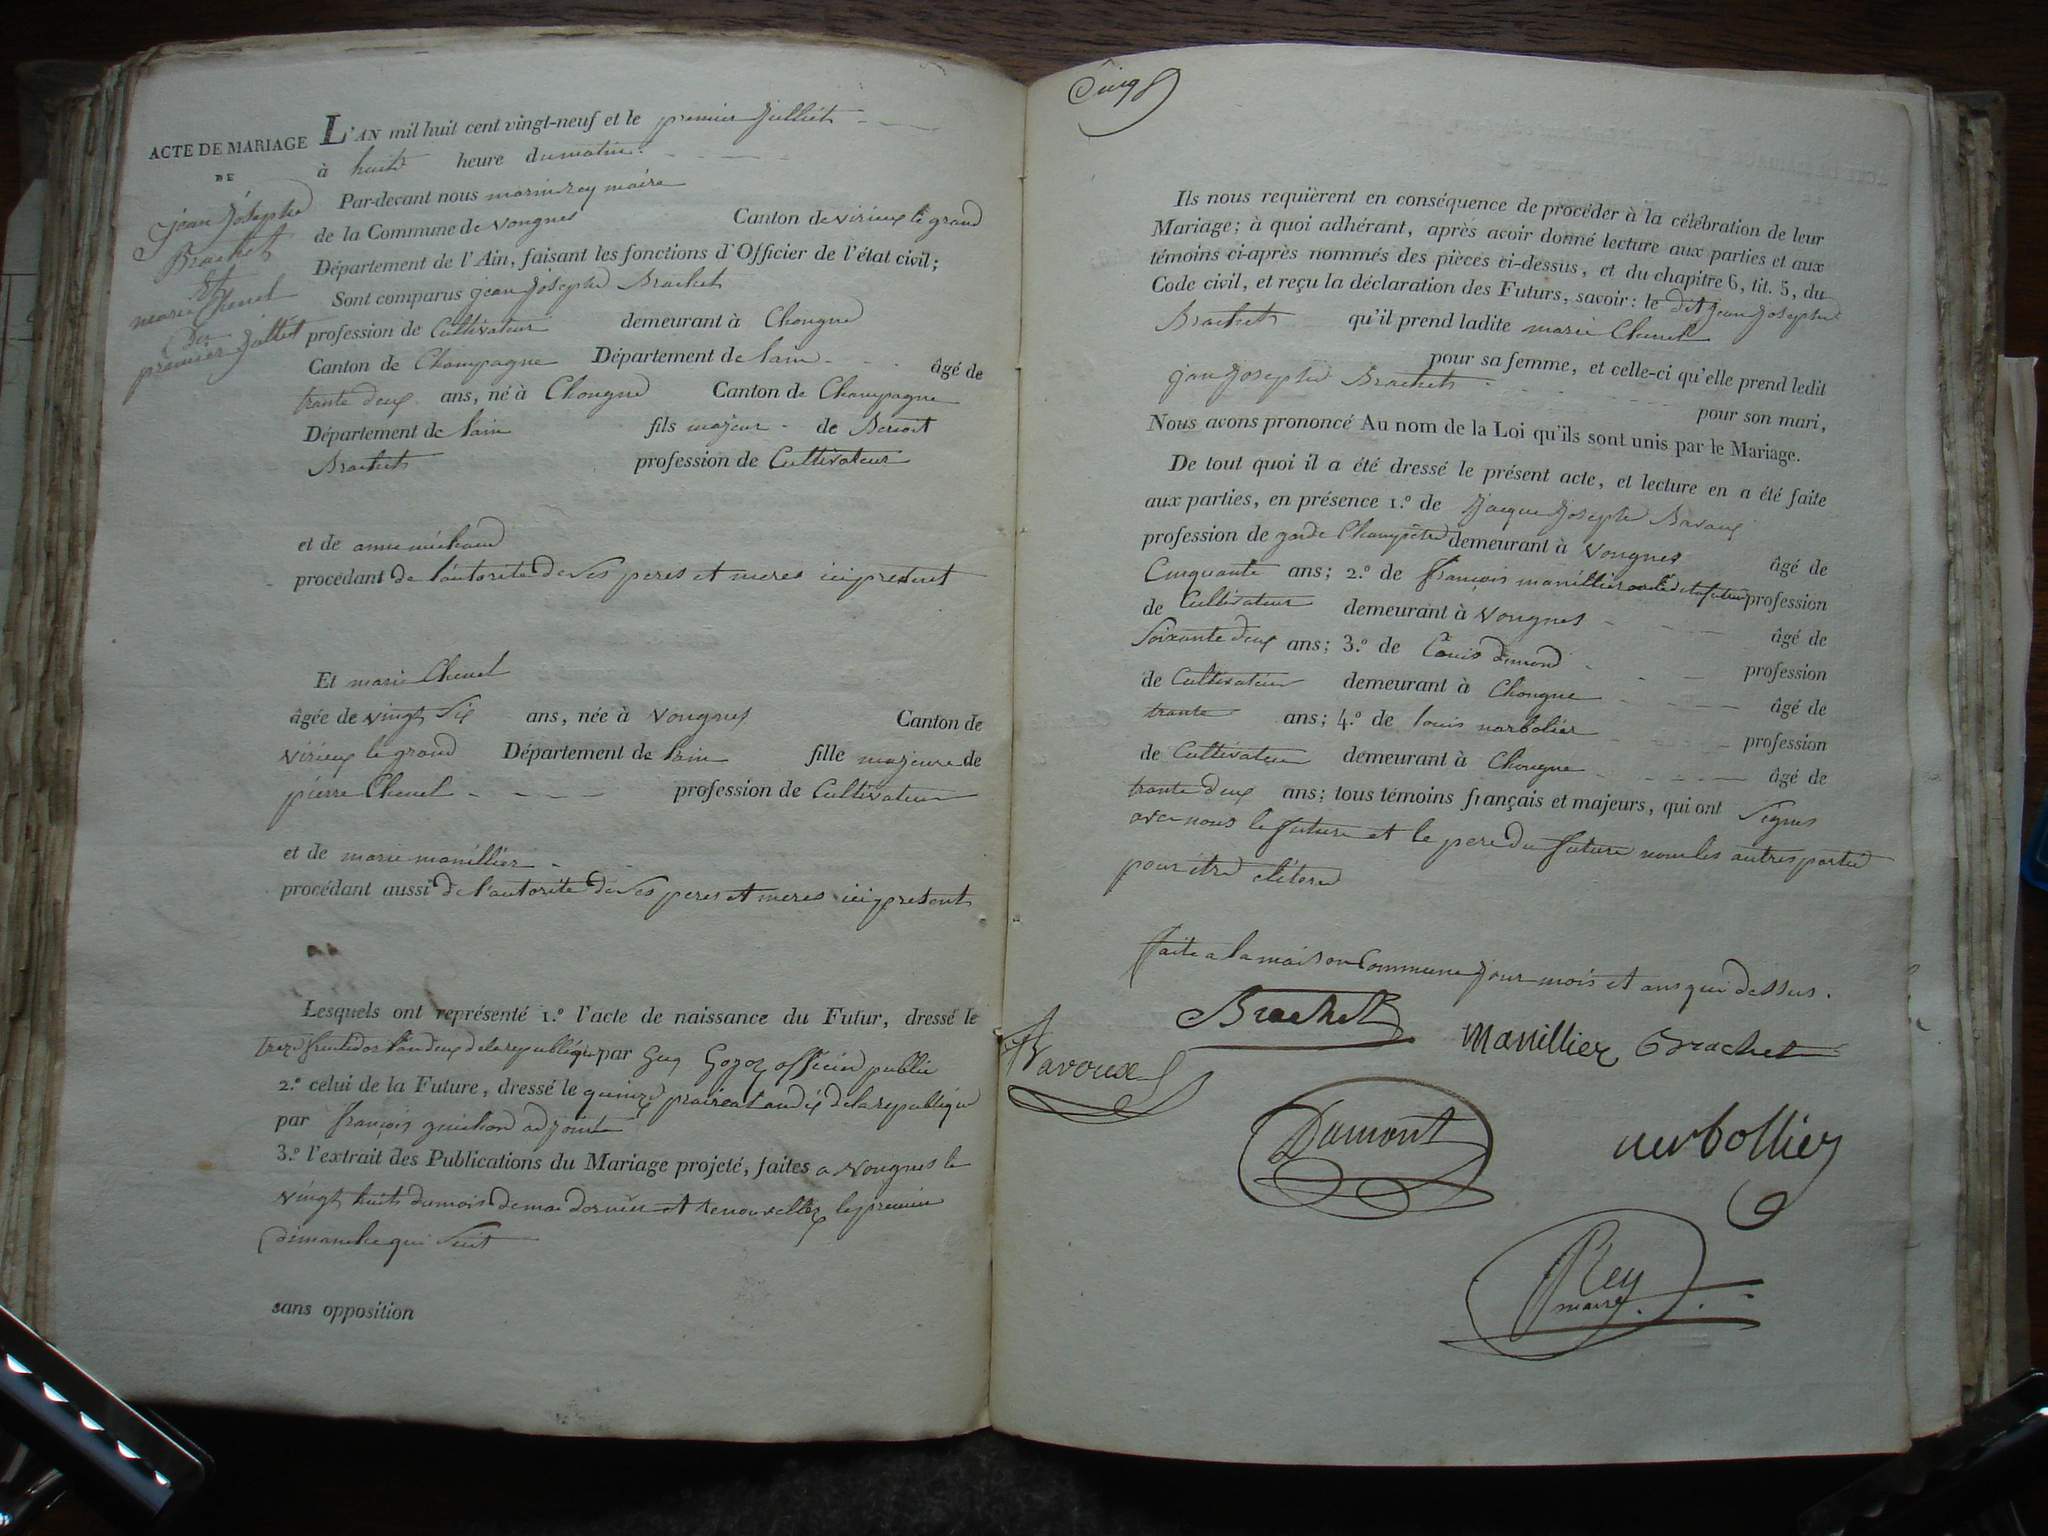 ACTE DE MARIAGE
DE
jean Josephe
Brachet
Et
marie Chenel
du
premier Julliet
L'AN mil huit cent vingt-neuf et le premier Julliet
à huit heure du matin
Par-devant nous marin rey maire
de la Commune de vongnes Canton de virieux le grand
Département de l'Ain, faisant les fonctions d'Officier de l'état civil;
Sont comparus jean Josephe Brachet
profession de Cultivateur demeurant à Chongne
Canton de Champagne Département de lain âgé de
trante deux ans, né à Chongne Canton de Champagne
Département de lain fils majeur de Benoit
Brachet profession de Cultivateur
et de anne michaud
procédant de l'autorité de ses peres et meres ici present
Et marie Chenel
âgée de vingt six ans, née à vongnes Canton de
virieux le grand Département de lain fille majeure de
pierre Chenel profession de Cultivateur
et de marie manillier
procédant aussi de l'autorité de ses peres et meres ici present
Lesquels ont représenté 1.º l'acte de naissance du Futur, dressé le
treze fruitidor l'an deux de la republique par Guy officier public
2.º celui de la Future, dressé le quinze praireal an dix de la republique
par françois guichon adjoint
3.º l'extrait des Publications du Mariage projeté, faites a vongnes le
vingt huit du mois de mai dernier et renouvellez le premier
dimanche qui suit
sans opposition
Ils nous requièrent en conséquence de procéder à la célébration de leur
Mariage; à quoi adhérant, après avoir donné lecture aux parties et aux
témoins ci-après nommés des pièces ci-dessus, et du chapitre 6, tit. 5, du
Code civil, et reçu la déclaration des Futurs, savoir: le dit jean Josephe
Brachet qu'il prend ladite marie Chenel
pour sa femme, et celle-ci qu'elle prend ledit
jean Josephe Brachet
pour son mari,
Nous avons prononcé Au nom de la Loi qu'ils sont unis par le Mariage.
De tout quoi il a été dressé le présent acte, et lecture en a été faite
aux parties, en présence 1.º de Jacque Josephe Savoux
profession de garde Champêtre demeurant à vongnes âgé de
Cinquante ans; 2.º de françois manillier profession
de Cultivateur demeurant à vongnes âgé de
soixante deux ans; 3.º de Louis dumond profession
de Cultivateur demeurant à Chongne âgé de
trante ans; 4.º de louis narbolier profession
de Cultivateur demeurant à Chongne âgé de
trante deux ans; tous témoins français et majeurs, qui ont signés
avec nous le future et le pere du future non les autres partie
pour etre
faite a la maison Commune jour mois et ans que dessus.
Brachet manillier Brachet
Savoux
Dumont nerbollier
Rey
maire